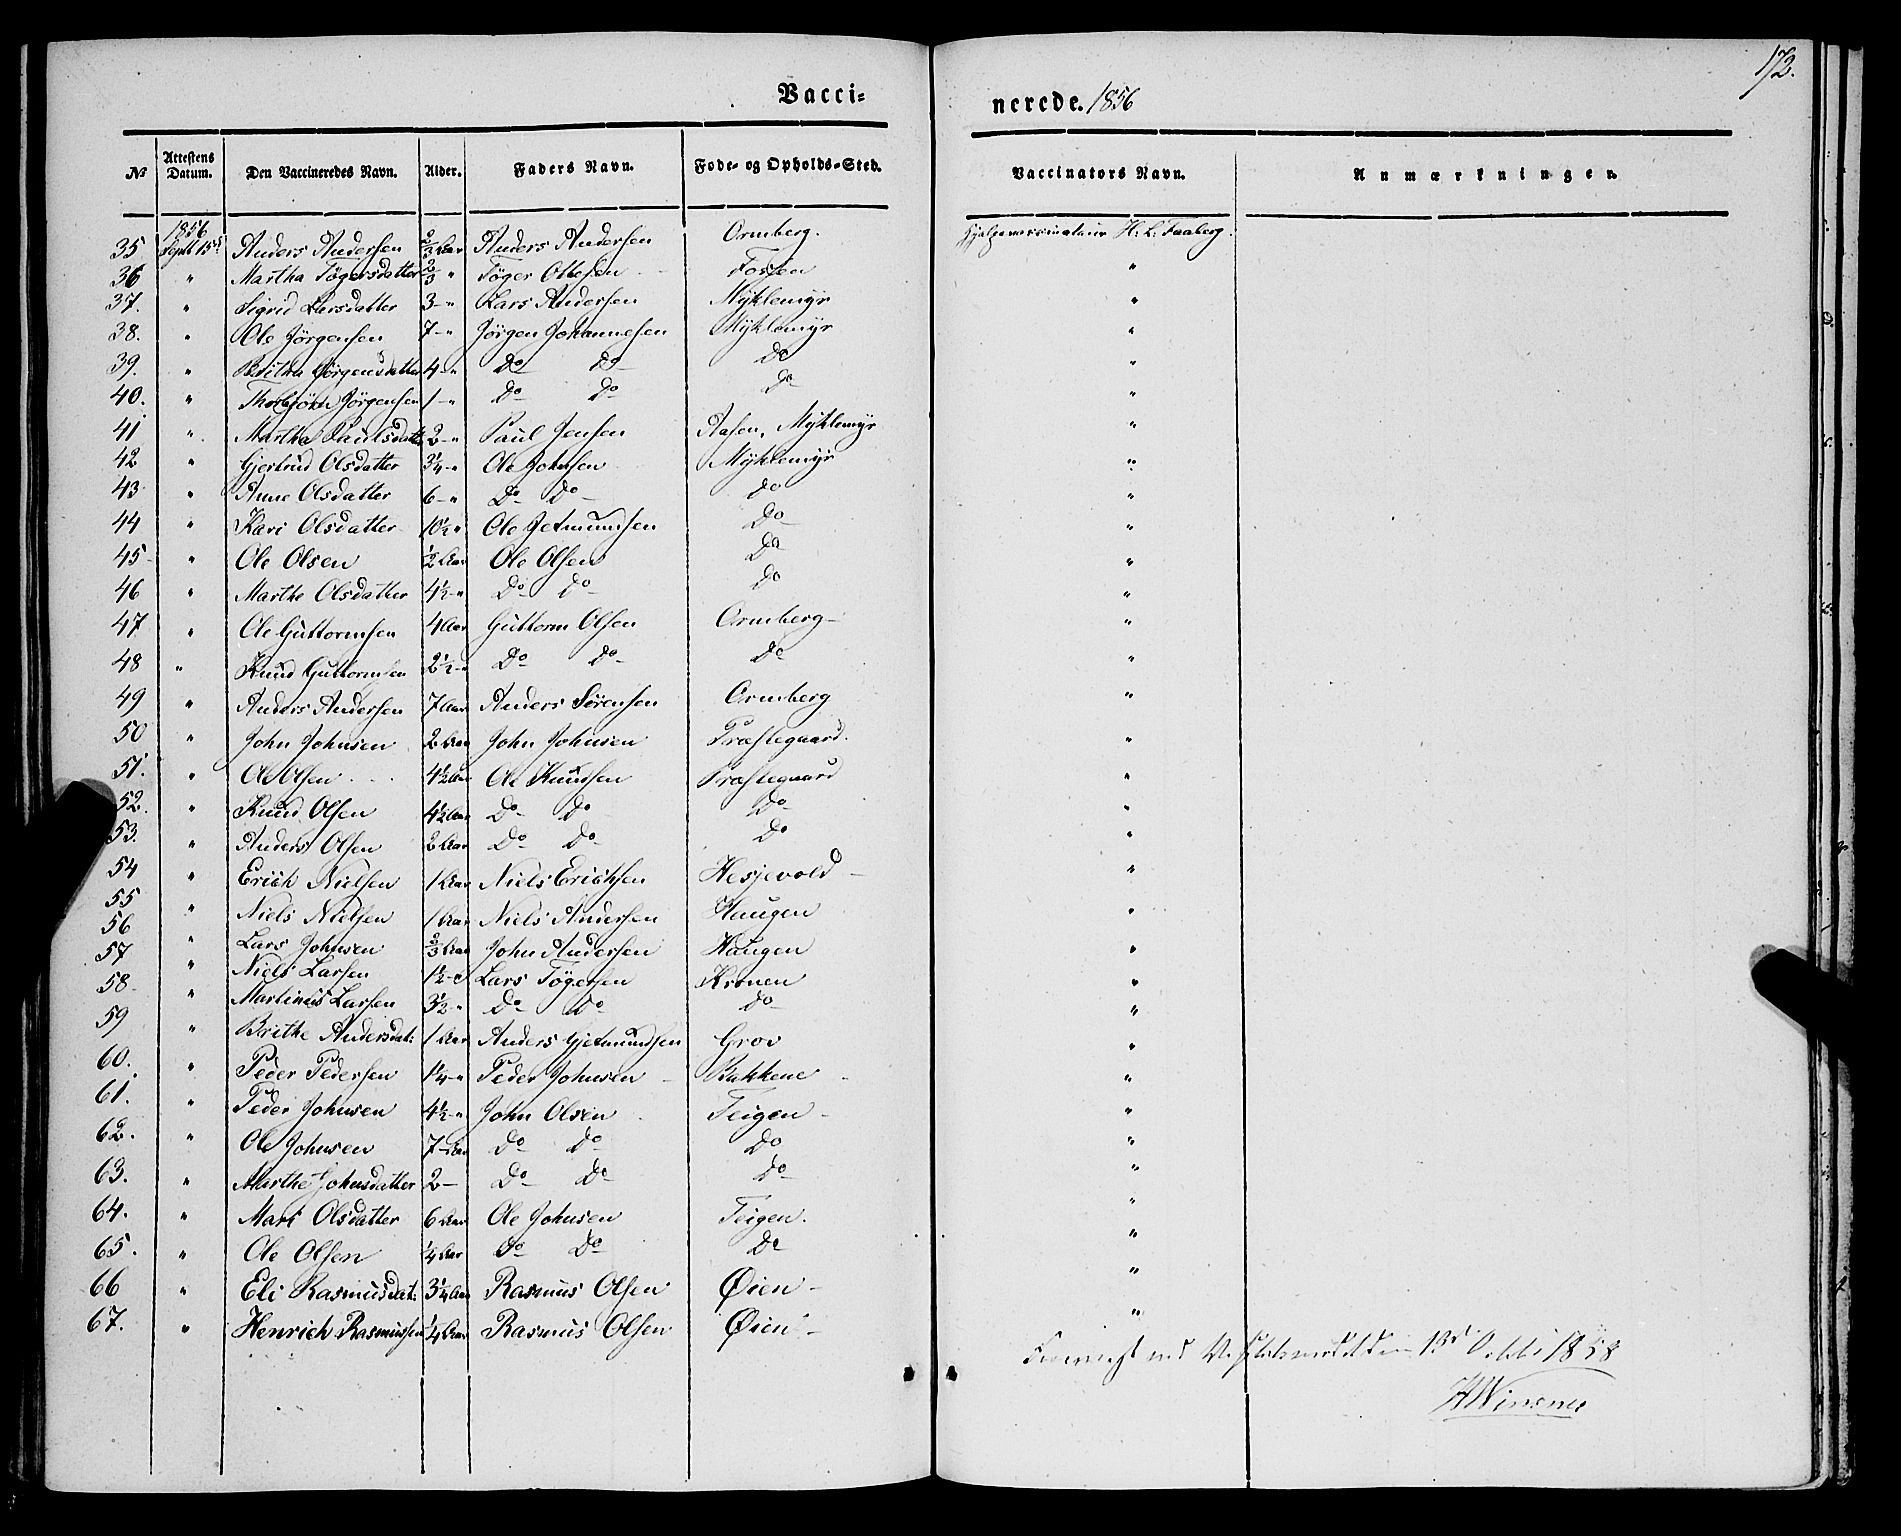 172.
Vacci- nerede. 1856
No Attestens Datum. Den Vaccineredes Navn. Alder. Faders Navn. Føde- og Opholds-Sted. Vaccinators Navn. Anmærkninger.
1856
35 Septbr 15d Anders Andersen 2/3 Aar Anders Andersen Ormberg. Hjelpevaccinateur H. L. Faaberg.
36 " Martha Tøgersdatter 2/3 " Tøger Ottesen Fossen "
37. " Sigrid Larsdatter 3 - " Lars Andersen Myklemyr "
38. " Ole Jørgensen 7 - " Jørgen Johannesen Myklemyr "
39. " Britha Jørgensdatter 4 - " Do Do Do "
40. " Thorbjørn Jørgensen 1 - " Do Do Do "
41 " Martha Paulsdatter 2 - " Paul Jensen Aasen, Myklemyr "
42 " Gjertrud Olsdatter 3 1/4 - " Ole Johnsen Myklemyr "
43 " Anne Olsdatter 6 - " Do Do Do "
44 " Kari Olsdatter 10 1/2 " Ole Jetmundsen Do "
45 " Ole Olsen 1/2 Aar Ole Olsen Do "
46 " Marthe Olsdatter 4 1/2 - " Do Do Do "
47 " Ole Guttormsen 4 Aar Guttorm Olsen Ormberg "
48 " Knud Guttormsen 2 1/2 - " Do Do Do "
49 " Anders Andersen 7 Aar Anders Sørensen Ormberg "
50 " John Johnsen 2 Aar John Johnsen Præstegaard. "
51. " Ole Olsen 4 1/2 Aar Ole Knudsen Præstegaard "
52. " Knud Olsen 4 1/2 Aar Do Do Do "
53. " Anders Olsen 2 Aar Do Do Do "
54 " Erich Nielsen 1 Aar Niels Erichsen Hesjevold "
55 " Niels Nielsen 1 Aar Niels Andersen Haugen "
56 " Lars Johnsen 2/3 Aar John Andersen Haugen "
57 " Niels Larsen 1 1/2 - " Lars Tøgersen Kronen "
58 " Martinus Larsen 3 1/2 - " Do Do Do "
59 " Brithe Andersdat: 1 Aar Anders Gjetmundsen Grov "
60. " Peder Pedersen 1 1/4 - " Peder Johnsen Bakkene "
61. " Peder Johnsen 4 1/2 - " John Olsen Teigen "
62. " Ole Johnsen 7 - Aar Do Do Do "
63. " Marthe Johnsdatter 2 - Do Do Do "
64. " Mari Olsdatter 6 Aar Ole Johnsen Teigen. "
65. " Ole Olsen 1/4 Aar Do Do Do "
66 " Eli Rasmusdat: 3 1/4 Aar Rasmus Olsen Øien "
67. " Henrich Rasmussen 1/4 Aar Rasmus Olsen Øien "
1858
Winsnes